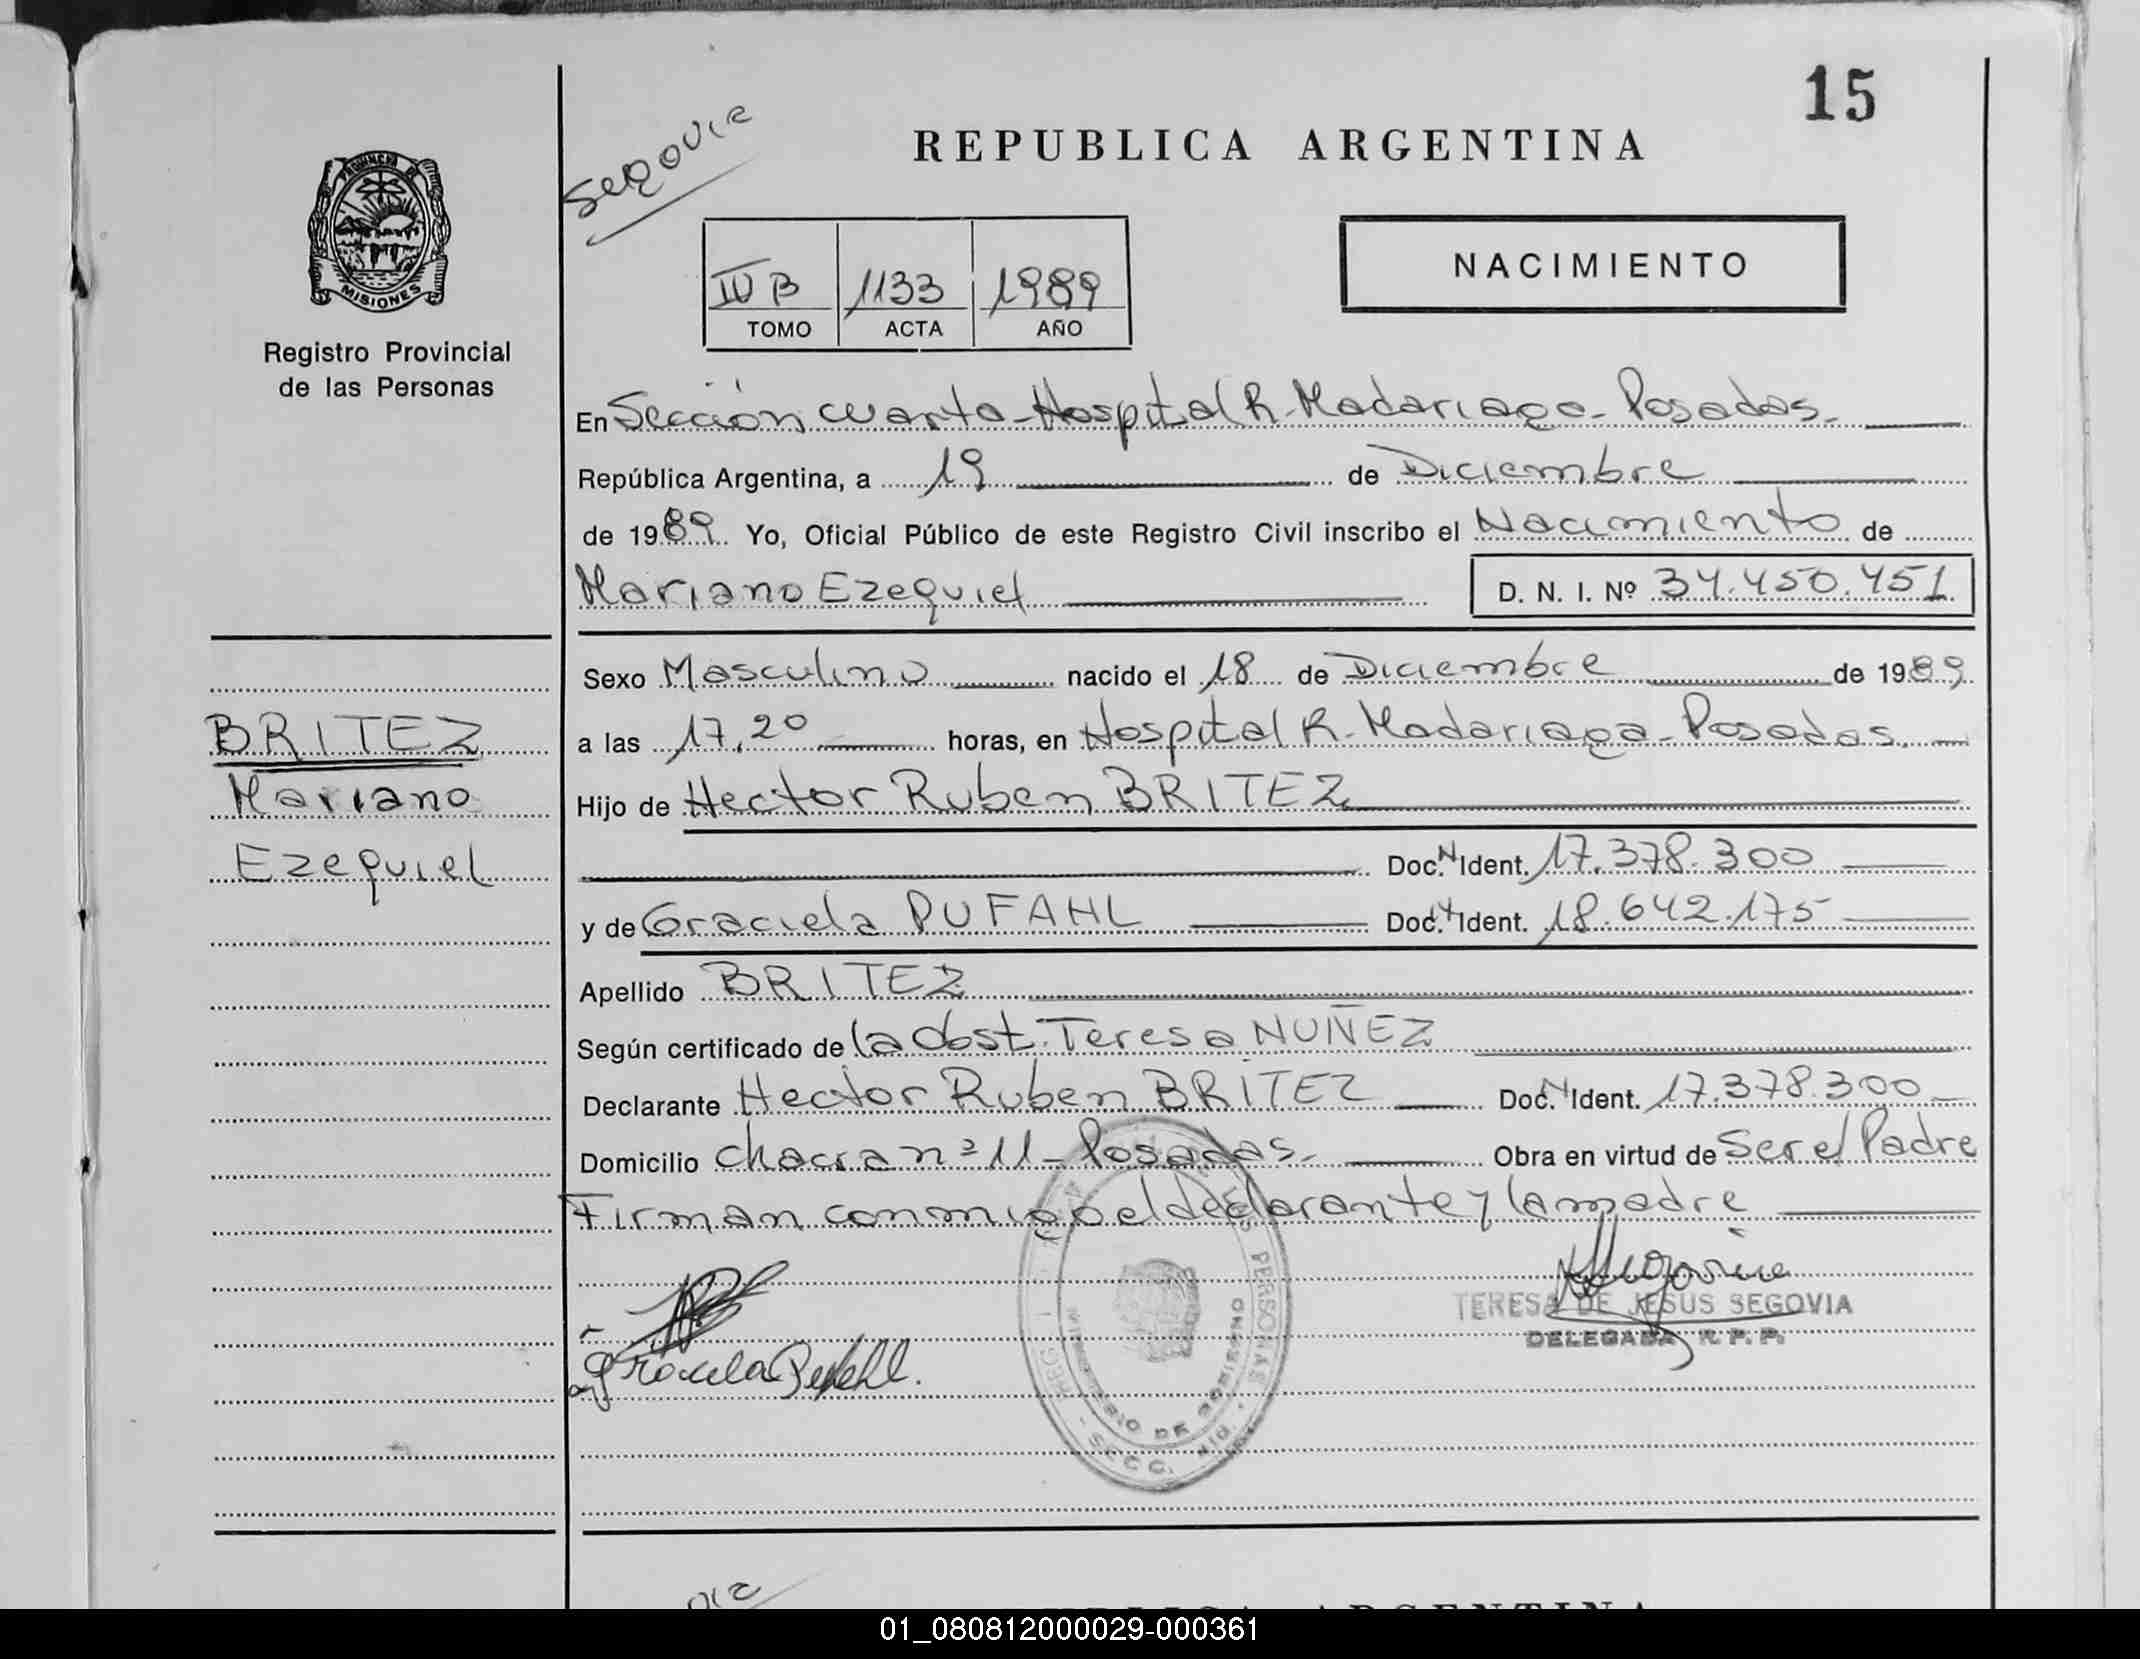 15
Segovia
REPUBLICA ARGENTINA
PROVINCIA DE
MISIONES
Registro Provincial
de las Personas
IV B 1133 1989
TOMO ACTA AÑO
NACIMIENTO
En Sección cuarta - Hospital R. Madariaga - Posadas.
República Argentina, a 19 de Diciembre
de 1989 Yo, Oficial Público de este Registro Civil inscribo el Nacimiento de
Mariano Ezequiel D. N. I. Nº 34.450.451
Sexo Masculino nacido el 18 de Diciembre de 1989
a las 17,20 horas, en Hospital R. Madariaga - Posadas.
Hijo de Hector Ruben BRITEZ
Doc. N Ident. 17.378.300
y de Graciela PUFAHL Doc. N Ident. 18.642.175
Apellido BRITEZ
Según certificado de la obst. Teresa NUÑEZ
Declarante Hector Ruben BRITEZ Doc. N Ident. 17.378.300
Domicilio chacra nº 11 - Posadas. Obra en virtud de Ser el Padre
Firman conmigo el declarante y la madre
BRITEZ
Mariano
Ezequiel
Graciela Pufahl.
Segovia
TERESA DE JESUS SEGOVIA
DELEGADA R. P. P.
PERSONAS
MINISTERIO DE GOBIERNO
SECC.
ARGENTINA
01_080812000029-000361